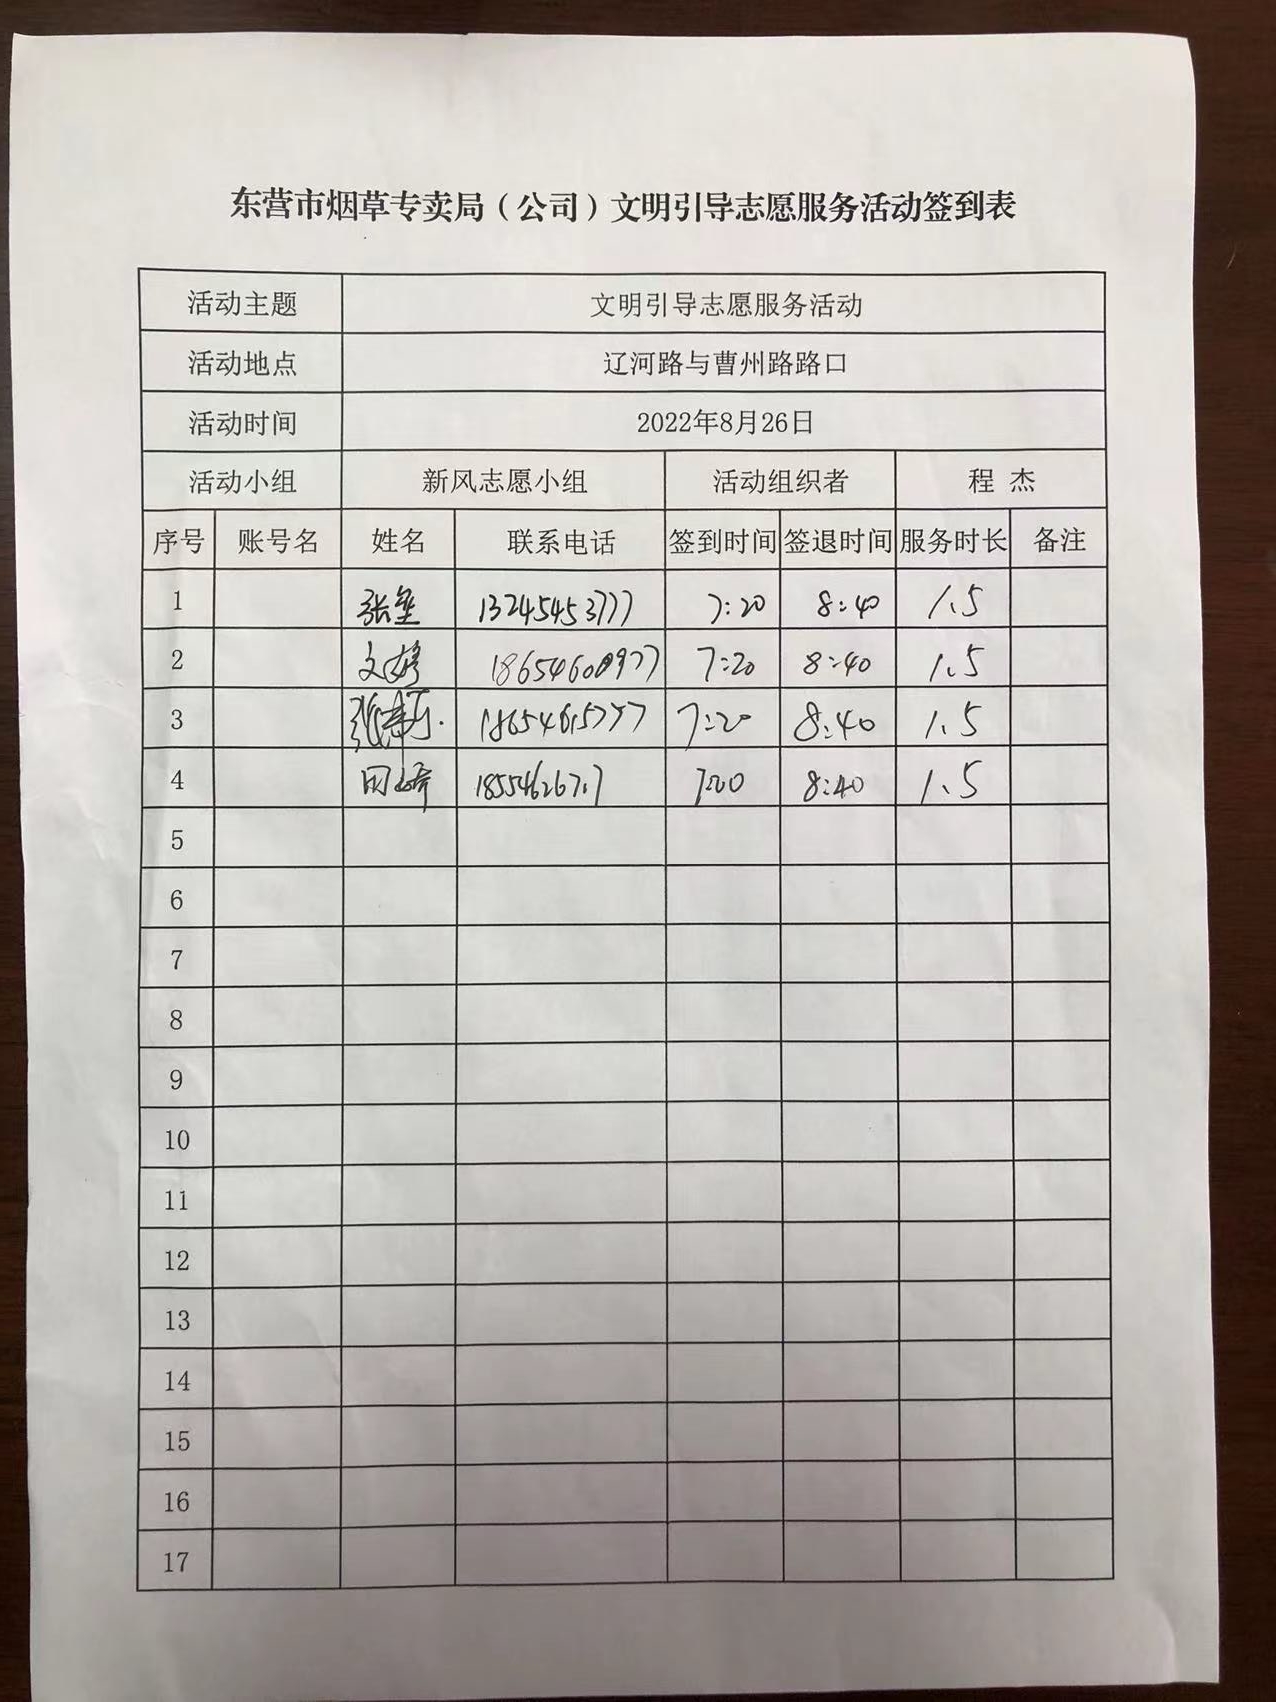 东营市烟草专卖局（公司）文明引导志愿服务活动签到表
活动主题 文明引导志愿服务活动
活动地点 辽河路与曹州路路口
活动时间 2022年8月26日
活动小组 新风志愿小组 活动组织者 程杰
序号 账号名 姓名 联系电话 签到时间 签退时间 服务时长 备注
1 13245453777 7:20 8:40 1.5
2 18654600977 7:20 8:40 1.5
3 7:20 8:40 1.5
4 8:40 1.5
5
6
7
8
9
10
11
12
13
14
15
16
17